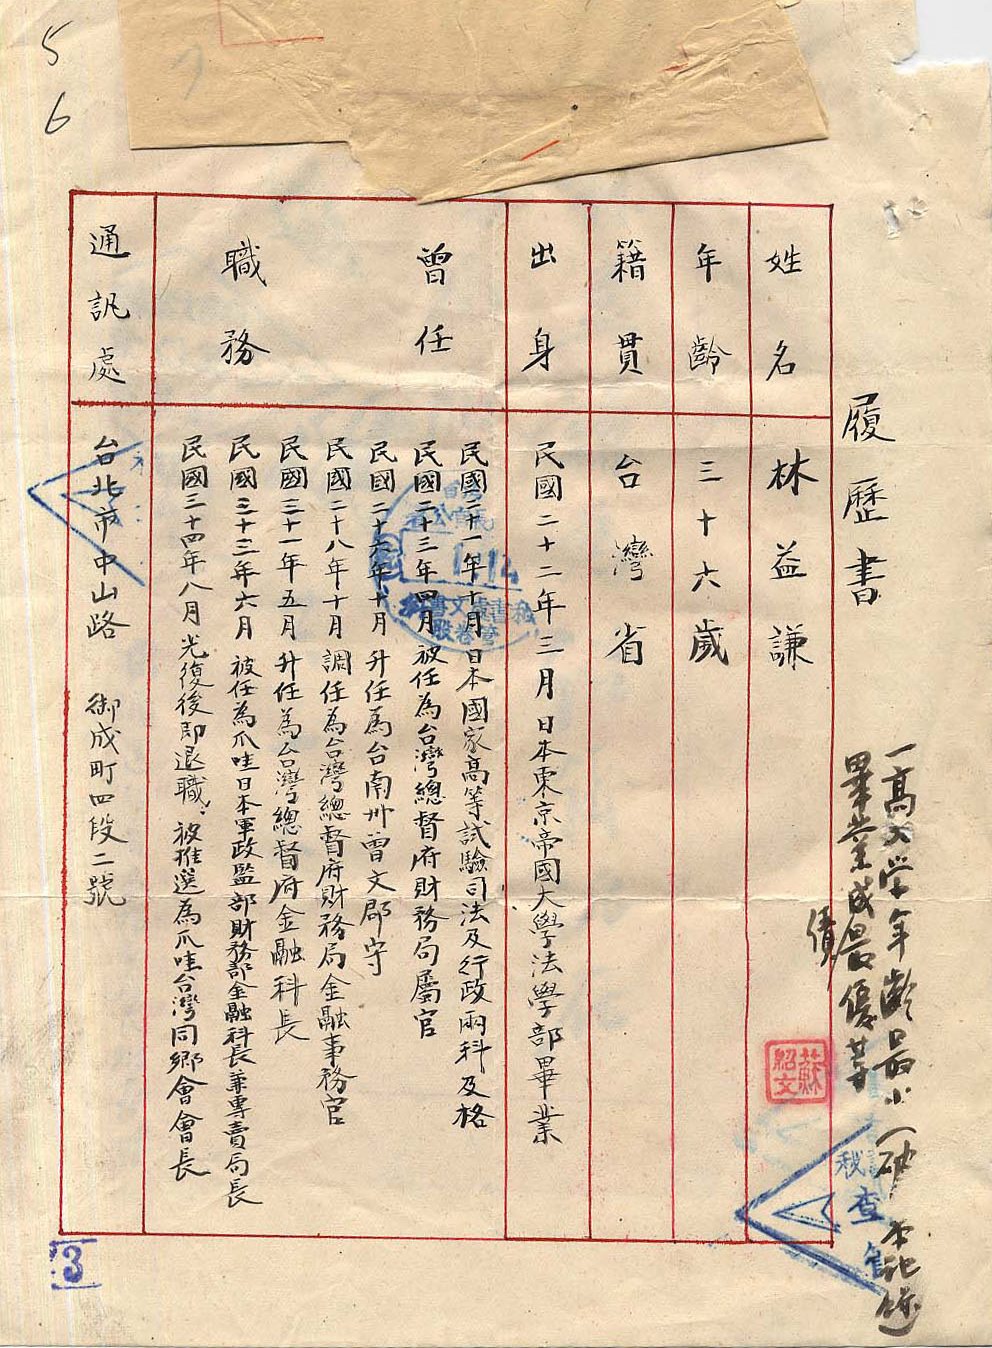 履歷書
一高大学年齡最小（破本記錄）
畢業成績最優等
姓名 林益謙
年齡 三十六歲
籍貫 台灣省
出身 民國二十二年三月日本東京帝國大學法學部畢業
曾任職務
民國二十一年十月日本國家高等試驗司法及行政兩科及格
民國二十三年四月被任為台灣總督府財務局屬官
民國二十六年十月升任為台南州曾文郡守
民國二十八年十月調任為台灣總督府財務局金融事務官
民國三十一年五月升任為台灣總督府金融科長
民國三十三年六月被任為爪哇日本軍政監部財務部金融科長兼專賣局長
民國三十四年八月光復後即退職、被推選為爪哇台灣同鄉會會長
通訊處 台北市中山路 御成町四段二號
蘇紹文
查
1.14
5
6
3